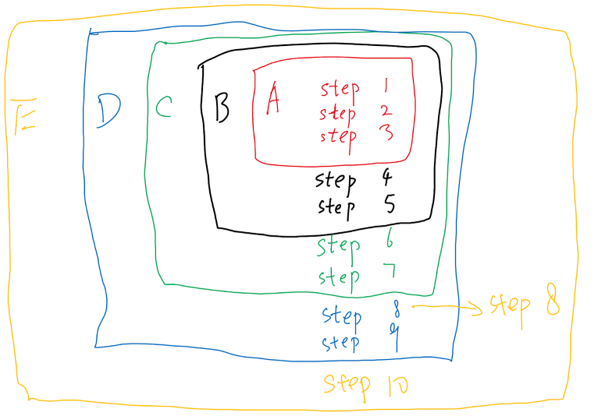 A step 1
step 2
step 3
B
C
D
E
step 4
step 5
step 6
step 7
step 8 → step 8
step 9
step 10